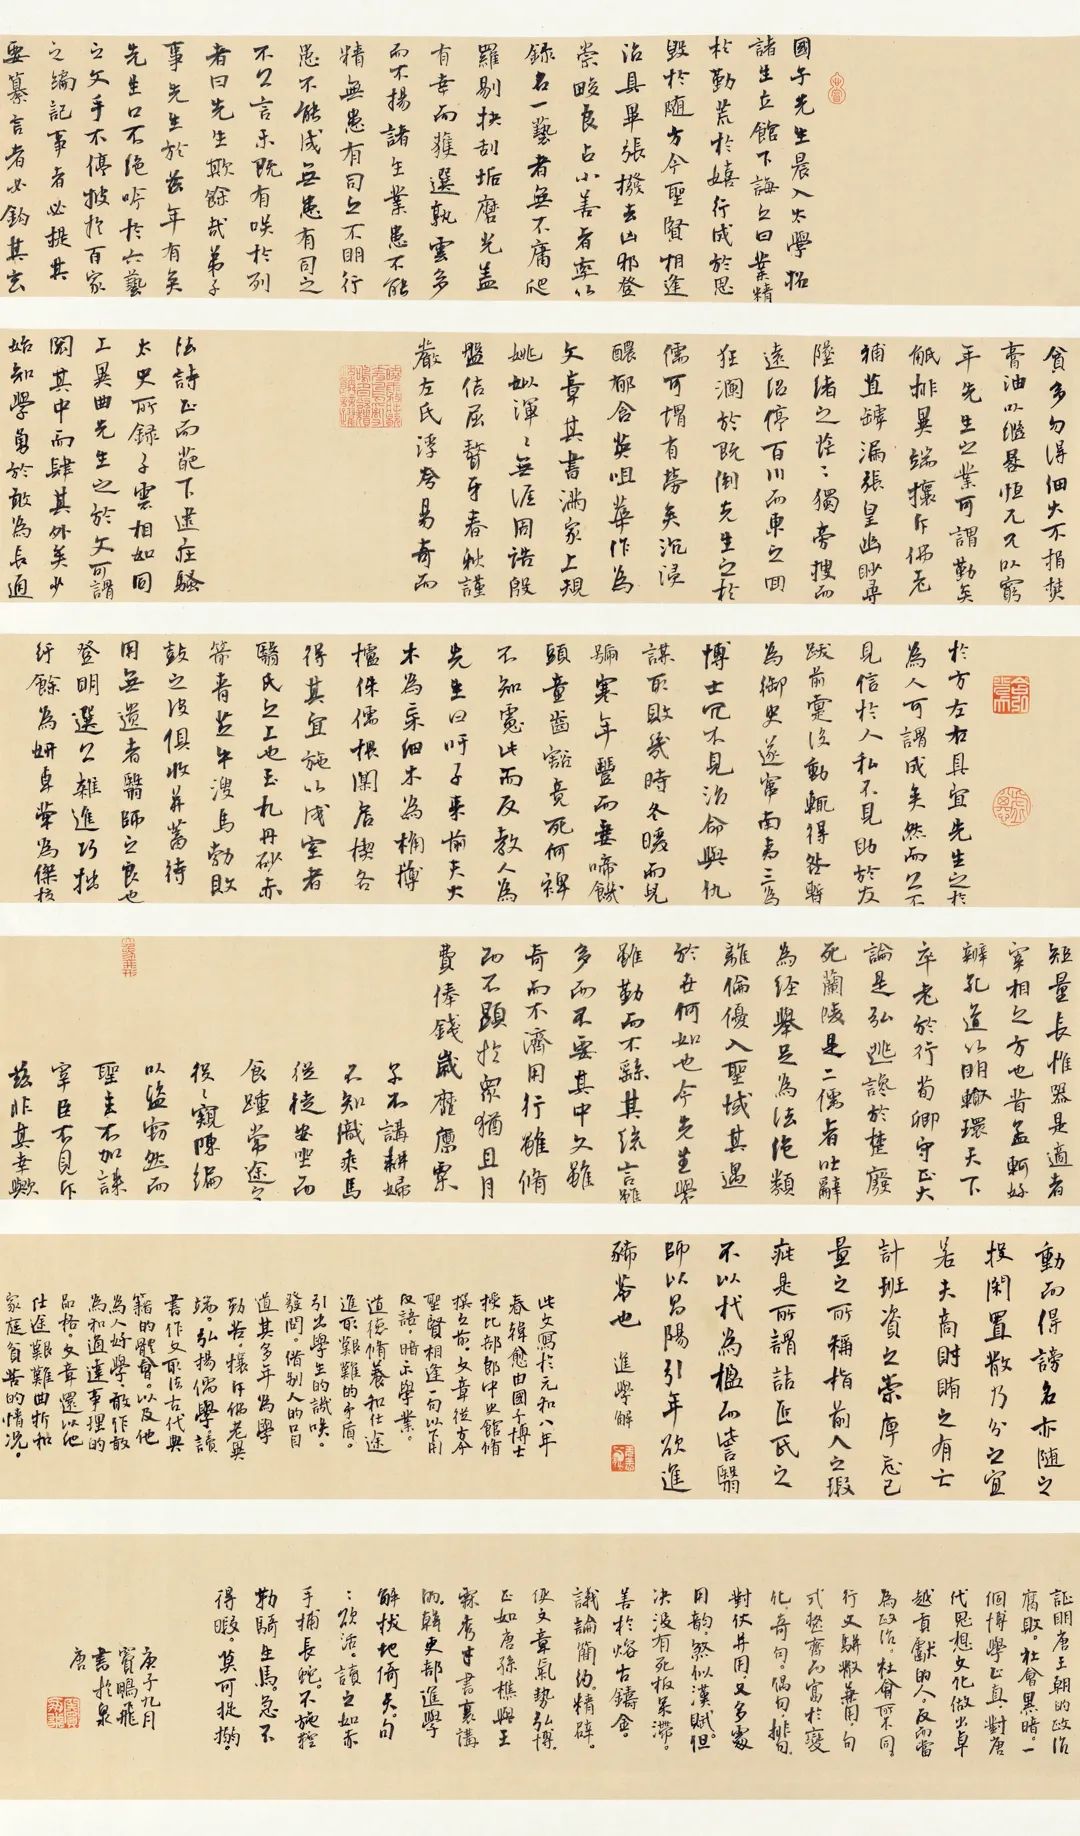 國子先生晨入太學招
諸生立館下誨之曰業精
於勤荒於嬉行成於思
毀於隨方今聖賢相逢
治具畢張撥去凶邪登
崇畯良占小善者率以
錄名一藝者無不庸爬
羅剔抉刮垢磨光蓋
有幸而獲選孰雲多
而不揚諸生業患不能
精無患有司之不明行
患不能成無患有司之
不公言未既有咲於列
者曰先生欺餘哉弟子
事先生於茲年有矣
先生口不絕吟於六藝
之文手不停披於百家
之編記事者必提其
要纂言者必鈎其玄
貪多勿得細大不捐焚
膏油以繼晷恒兀兀以窮
年先生之業可謂勤矣
觝排異端攘斥佛老
補苴罅漏張皇幽眇尋
墜緒之茫〻獨旁搜而
遠紹停百川而東之回
狂瀾於既倒先生之於
儒可謂有勞矣沉浸
醲郁含英咀華作為
文章其書滿家上規
姚姒渾〻無涯周誥殷
盤佶屈聱牙春秋謹
嚴左氏浮誇易奇而
法詩正而葩下逮莊騷
太史所錄子雲相如同
工異曲先生之於文可謂
閎其中而肆其外矣少
始知學勇於敢為長通
於方左右具宜先生之於
為人可謂成矣然而公不
見信於人私不見助於友
跋前疐後動輒得咎暫
為御史遂竄南夷三為
博士冗不見治命與仇
謀取敗幾時冬暖而兒
號寒年豐而妻啼饑
頭童齒豁竟死何裨
不知慮此而反教人為
先生曰吁子來前夫大
木為杗細木為桷欂
櫨侏儒椳闑扂楔各
得其宜施以成室者
醫氏之工也玉札丹砂赤
箭青芝牛溲馬勃敗
鼓之皮俱收并蓄待
用無遺者醫師之良也
登明選公雜進巧拙
紆餘為妍卓犖為傑校
短量長惟器是適者
宰相之方也昔孟軻好
辯孔道以明轍環天下
卒老於行荀卿守正大
論是弘逃讒於楚廢
死蘭陵是二儒者吐辭
為經舉足為法絕類
離倫優入聖域其遇
於世何如也今先生學
雖勤而不繇其統言雖
多而不要其中文雖
奇而不濟用行雖脩
而不顯於眾猶且月
費俸錢歲靡廩粟
子不講耕婦
不知織乘馬
從徒安坐而
食踵常途之
役〻窺陳編
以盜竊然而
聖主不加誅
宰臣不見斥
茲非其幸歟
動而得謗名亦隨之
投閑置散乃分之宜
若夫商財賄之有亡
計班資之崇庳忘己
量之所稱指前人之瑕
疵是所謂詰匠氏之
不以杙為楹而訾醫
師以昌陽引年欲進
豨苓也
進學解
此文寫於元和八年
春韓愈由國子博士
授比部郎中史館脩
撰之前。文章從本
聖賢相逢一句以下用
反語，暗示學業。
道德脩養和仕途
進取艱難的矛盾。
引出學生的譏咲。
發問。借別人的口目
道其多年為學
勤苦。攘斥佛老異
端。弘揚儒學讀
書作文取法古代典
籍的體會。以及他
為人好學敢作敢
為和通達事理的
品格。文章還以他
仕途艱難曲折和
家庭貧苦的情况。
証明唐王朝的政治
腐敗。社會黑暗。一
個博學正直。對唐
代思想文化做出卓
越貢獻的人，反而當
為政治。社會所不同
行文駢散兼用，句
式整齊而富於變
化，奇句。偶句，排句。
對仗并用，又多處
用韻。煞似漢賦。但
決沒有死板呆滯。
善於熔古鑄金。
議論簡約。精辟。
使文章氣勢弘博。
正如唐孫樵與王
霖秀才書裏講
的，韓吏部進學
解拔地倚天。句
〻欲活。讀之如赤
手捕長蛇。不施控
勒騎生馬。急不
得暇。莫可捉搦。
庚子九月
竇鵬飛
書於泉
唐